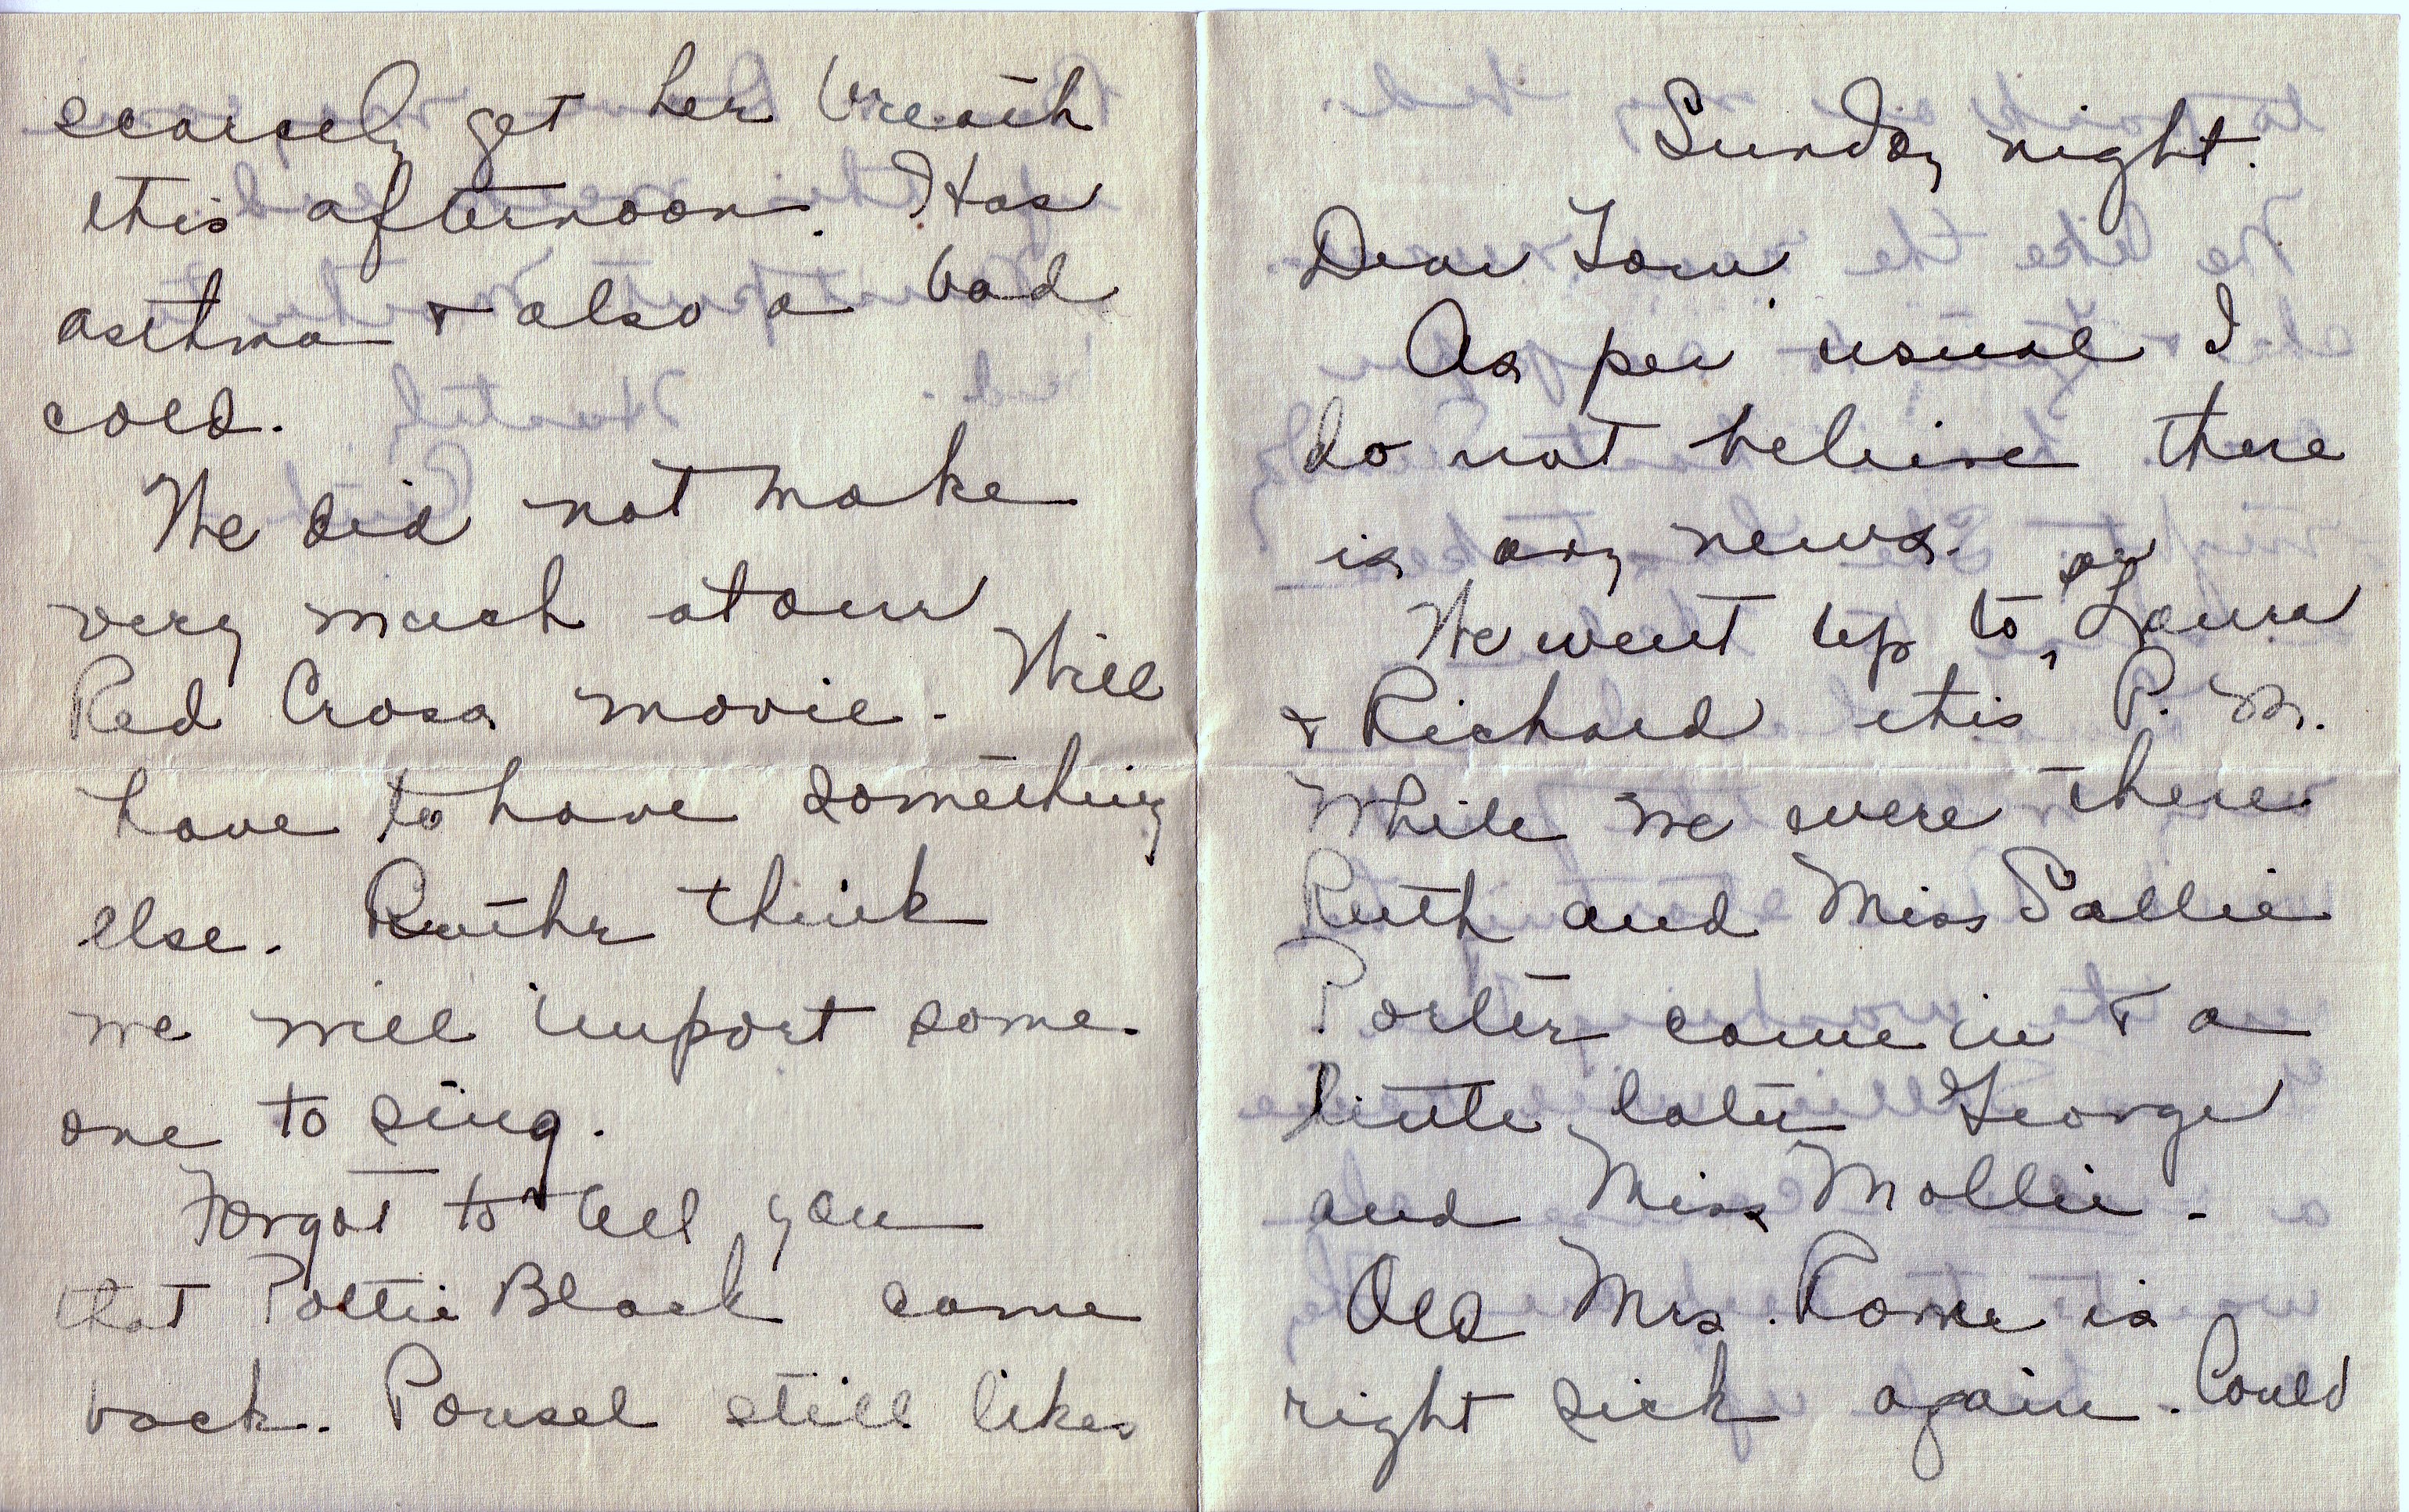 Sunday night.
Dear
As per usual I
do not believe there
is any news.
We went up to Laura
& Richard this P. M.
While we were there
Ruth and Miss Sallie
Porter came in & a
little later George
and Miss Mollie.
Old Mrs. Rome is
right sick again. Could
scarcely get her breath
this afternoon. Has
asthma & also a bad
cold.
We did not make
very much at our
Red Cross movie. Will
have to have something
else. Ruther think
we will import some
one to sing.
Forgot to tell you
that Pottie Black came
back. Pousel still likes